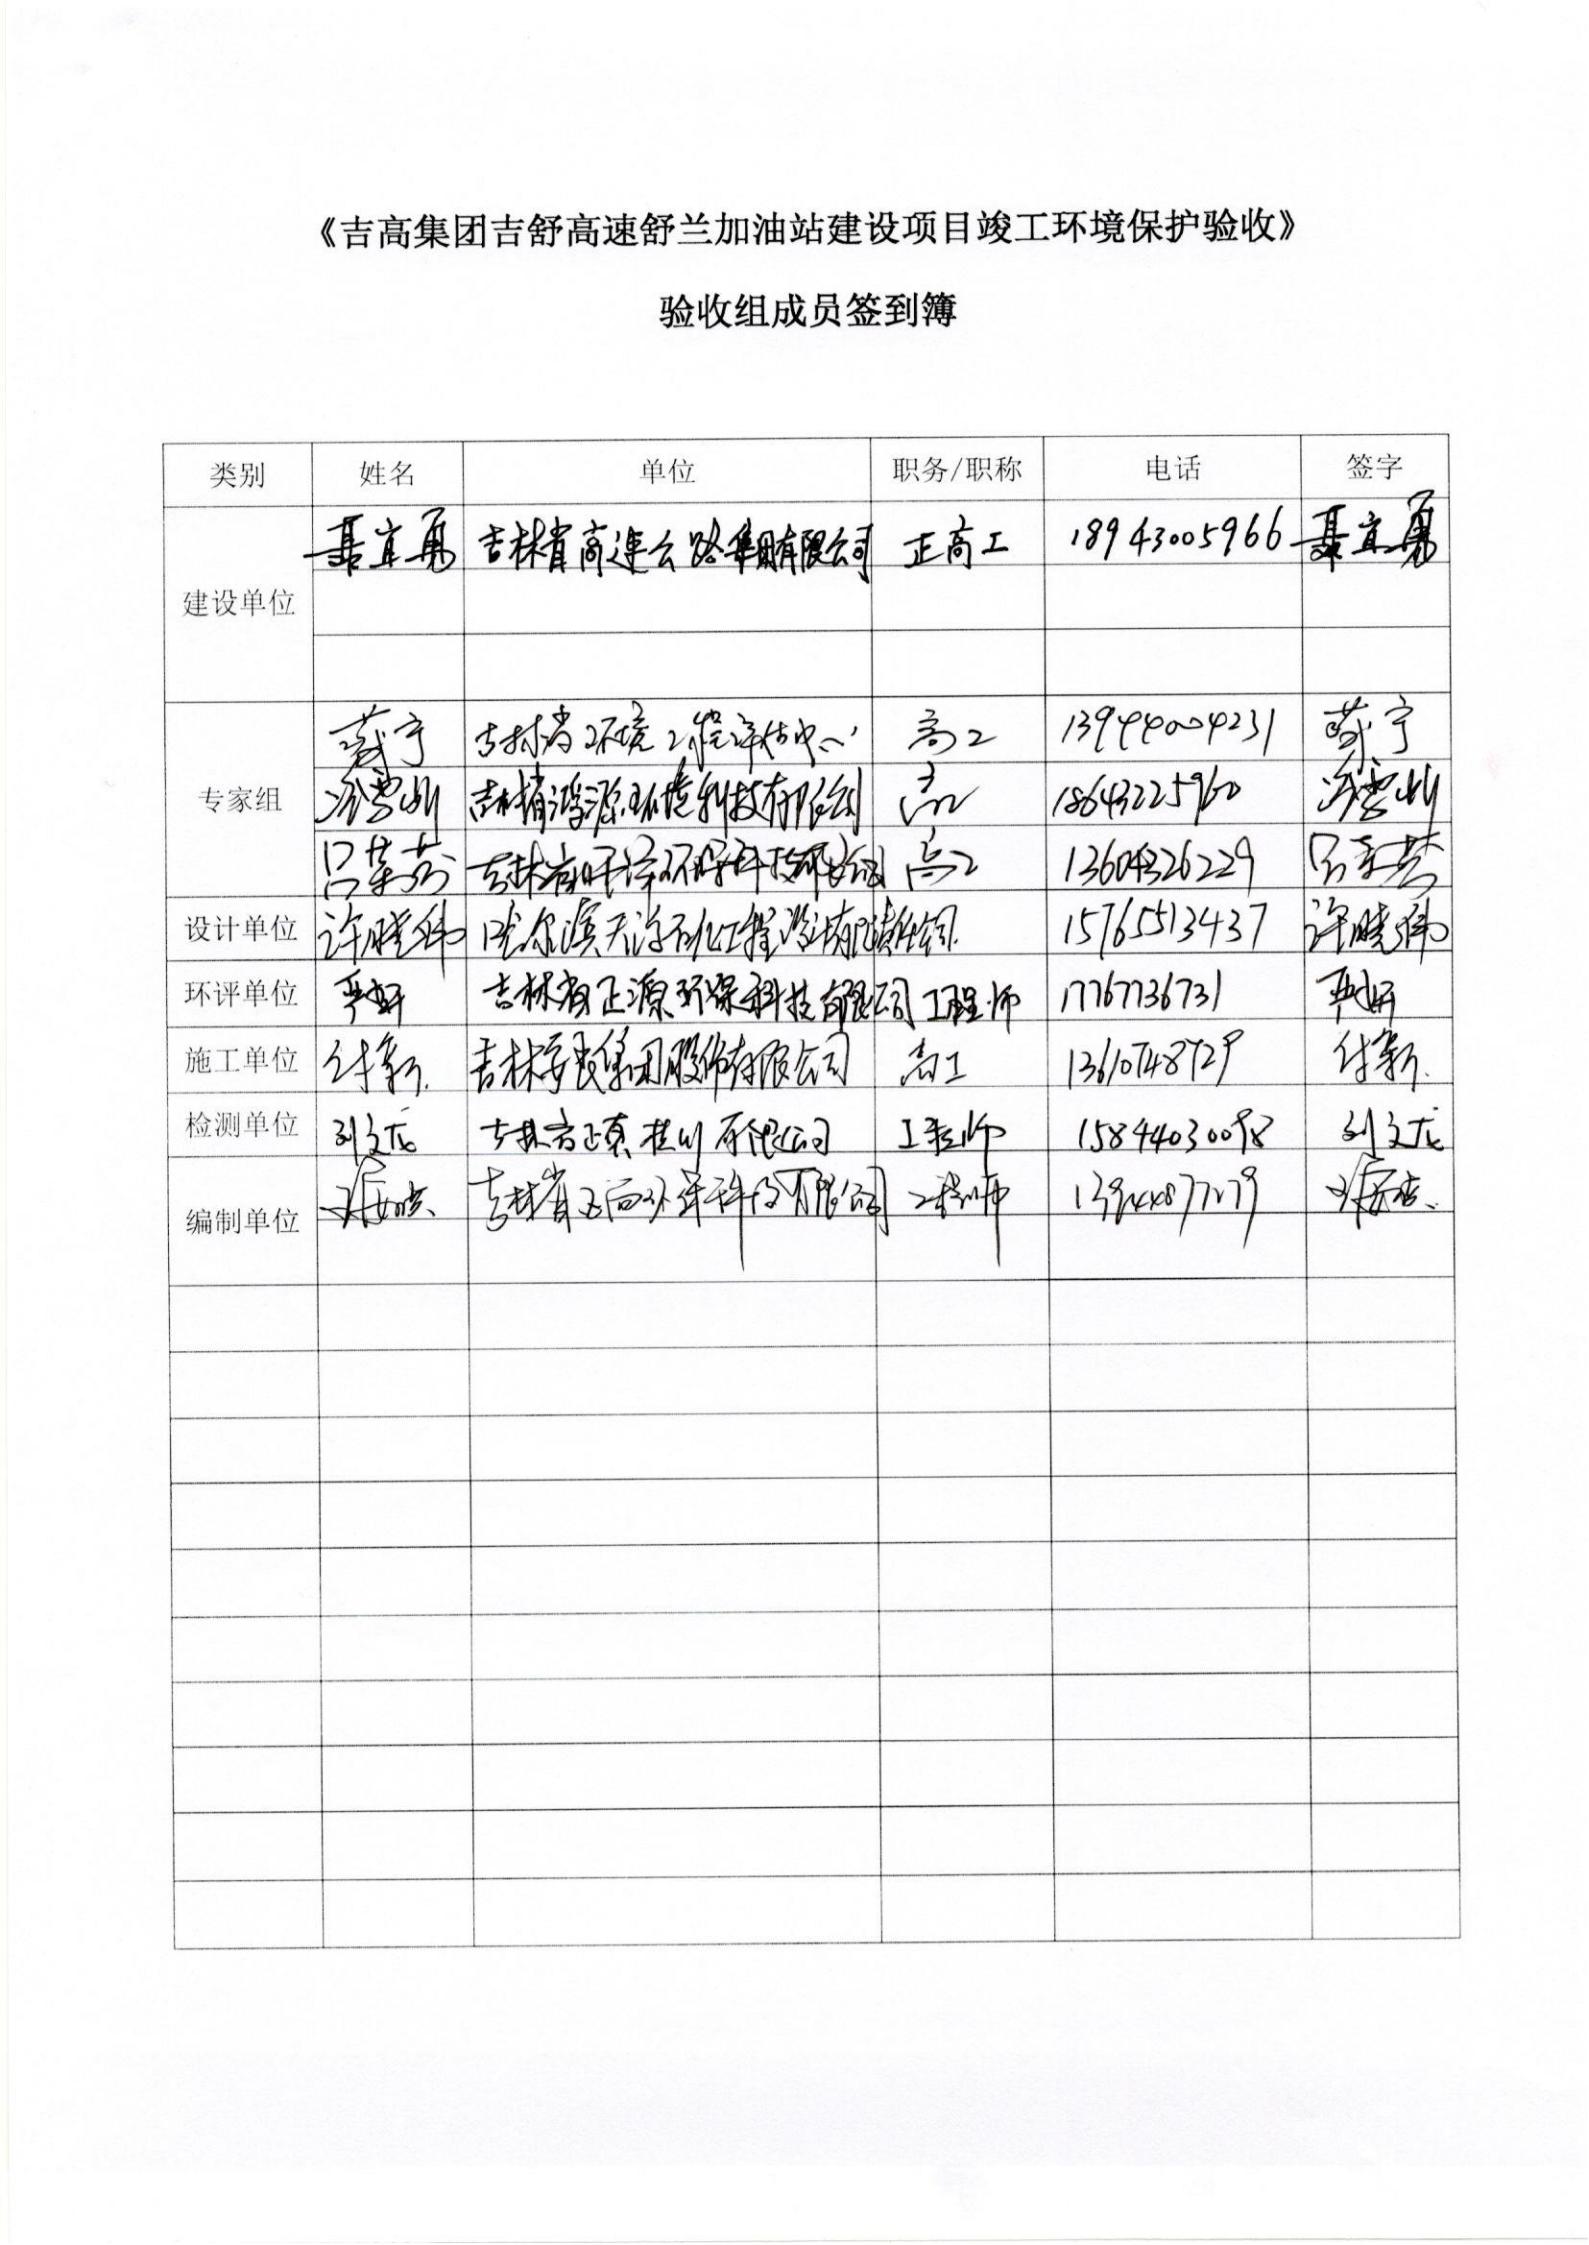 《吉高集团吉舒高速舒兰加油站建设项目竣工环境保护验收》
验收组成员签到簿
类别 姓名 单位 职务/职称 电话 签字
建设单位 聂宜勇 吉林省高速公路集团有限公司 正高工 18943005966 聂宜勇
专家组
宁 吉林省环境工程评估中心 高工 13944004231 宁
吉林省鸿源环境科技有限公司 高工 18643225960
吕 吉林省 环保科技有限公司 高工 13604326229 吕
设计单位 许晓伟 哈尔滨天 石化工程设计有限责任公司 15765513437 许晓伟
环评单位 严妍 吉林省正源环保科技有限公司 工程师 17767736731 严妍
施工单位 付新 吉林 集团股份有限公司 高工 13610748729 付新
检测单位 刘文龙 吉林省正真检测有限公司 工程师 15844030098 刘文龙
编制单位 吉林省 环保科技有限公司 工程师 13944877279